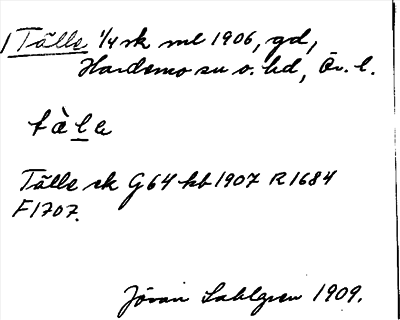 Tälle 1/4 sk ml 1906, gd,
Hardemo sn o. hd, Ör. l.
tàlla
Tälle sk G64 kb 1907 R1684
F1707.
Jöran Sahlgren 1909.